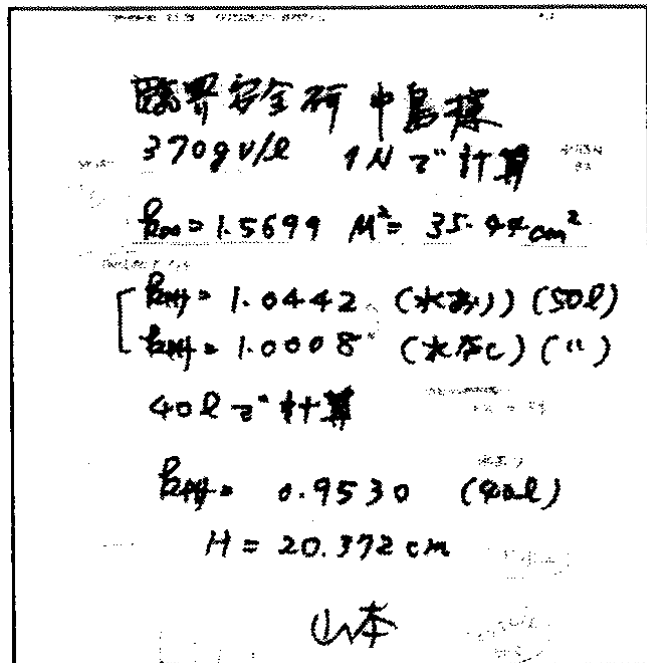 臨界安全研 中島様
370gU/l 1Nで計算
k∞=1.5699 M²= 35.44cm²
keff= 1.0442 (水あり) (50l)
keff= 1.0008 (水なし) (〃)
40lで計算
keff= 0.9530 (40l)
H = 20.372cm
山本